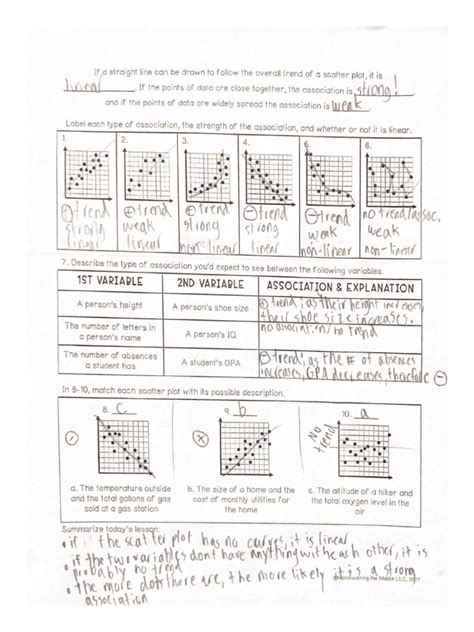 If a straight line can be drawn to follow the overall trend of a scatter plot, it is
linear. If the points of data are close together, the association is strong!
and if the points of data are widely spread the association is weak.
Label each type of association, the strength of the association, and whether or not it is linear.
1. 2. 3. 4. 5. 6.
⊕ trend strong linear
⊕ trend weak linear
⊕ trend strong non-linear
⊖ trend strong linear
⊖ trend weak non-linear
no trend/assoc. weak non-linear
7. Describe the type of association you'd expect to see between the following variables.
1ST VARIABLE 2ND VARIABLE ASSOCIATION & EXPLANATION
A person's height A person's shoe size ⊕ trend; as their height increases
their shoe size increases.
The number of letters in
a person's name A person's IQ no association/no trend
The number of absences
a student has A student's GPA ⊖ trend; as the # of absences
increases, GPA decreases, therefore ⊖
In 8-10, match each scatter plot with its possible description.
8. c 9. b 10. a
No trend
a. The temperature outside
and the total gallons of gas
sold at a gas station
b. The size of a home and the
cost of monthly utilities for
the home
c. The altitude of a hiker and
the total oxygen level in the
air
Summarize today's lesson:
• if the scatter plot has no curves, it is linear
• if the two variables dont have anything with each other, it is
probably no trend
• the more dots there are, the more likely it is a strong
association
Maneuvering the Middle LLC, 2017